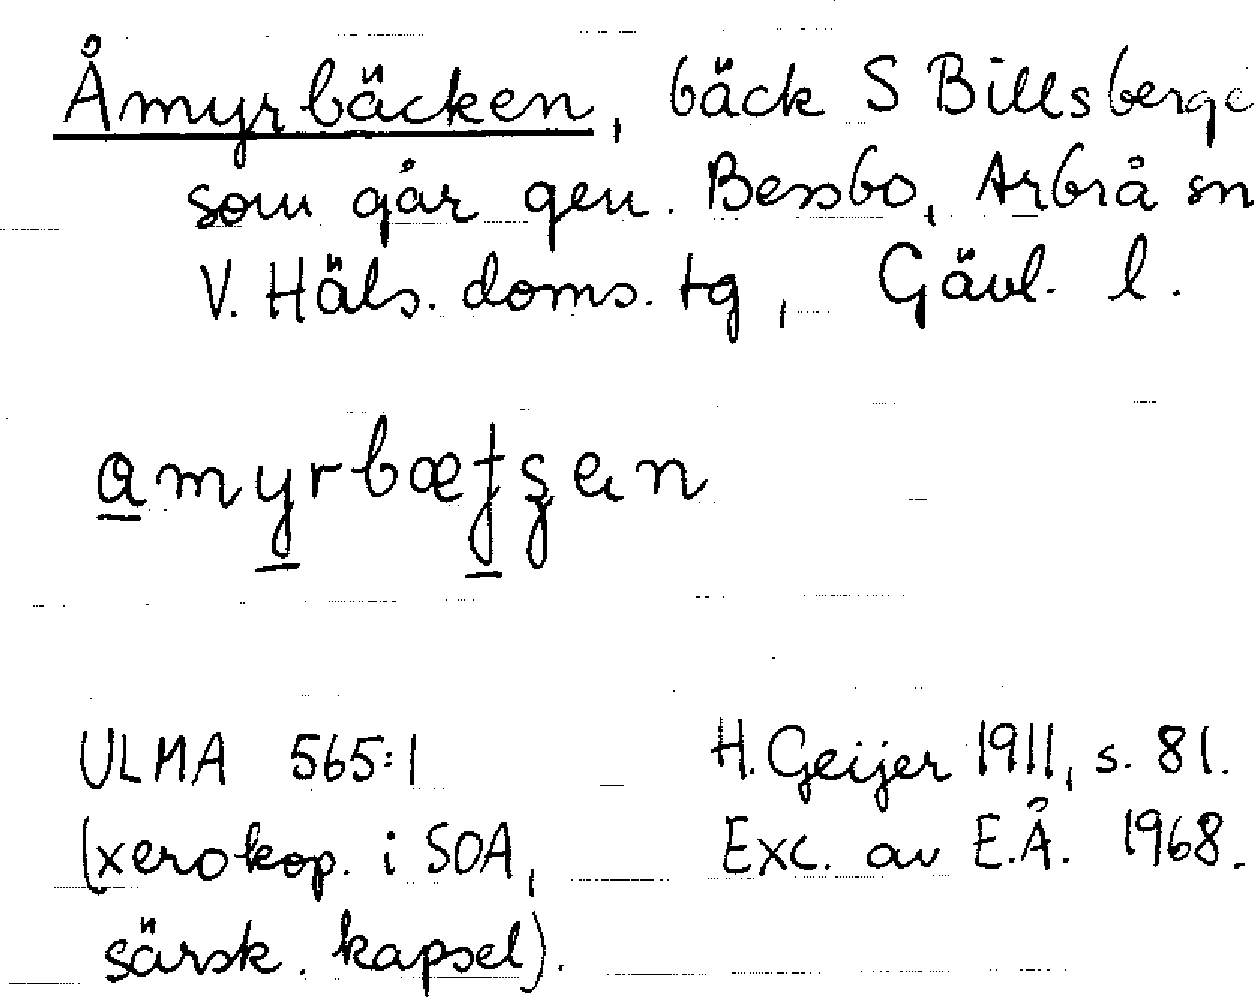 Åmyrbäcken, bäck S Billsberge
som går gen. Bessbo, Arbrå sn
V. Häls. doms. tg, Gävl. l.
ULMA 565:1 H. Geijer 1911, s. 81.
(xerokop. i SOA, Exc. av E.Å. 1968.
särsk. kapsel).